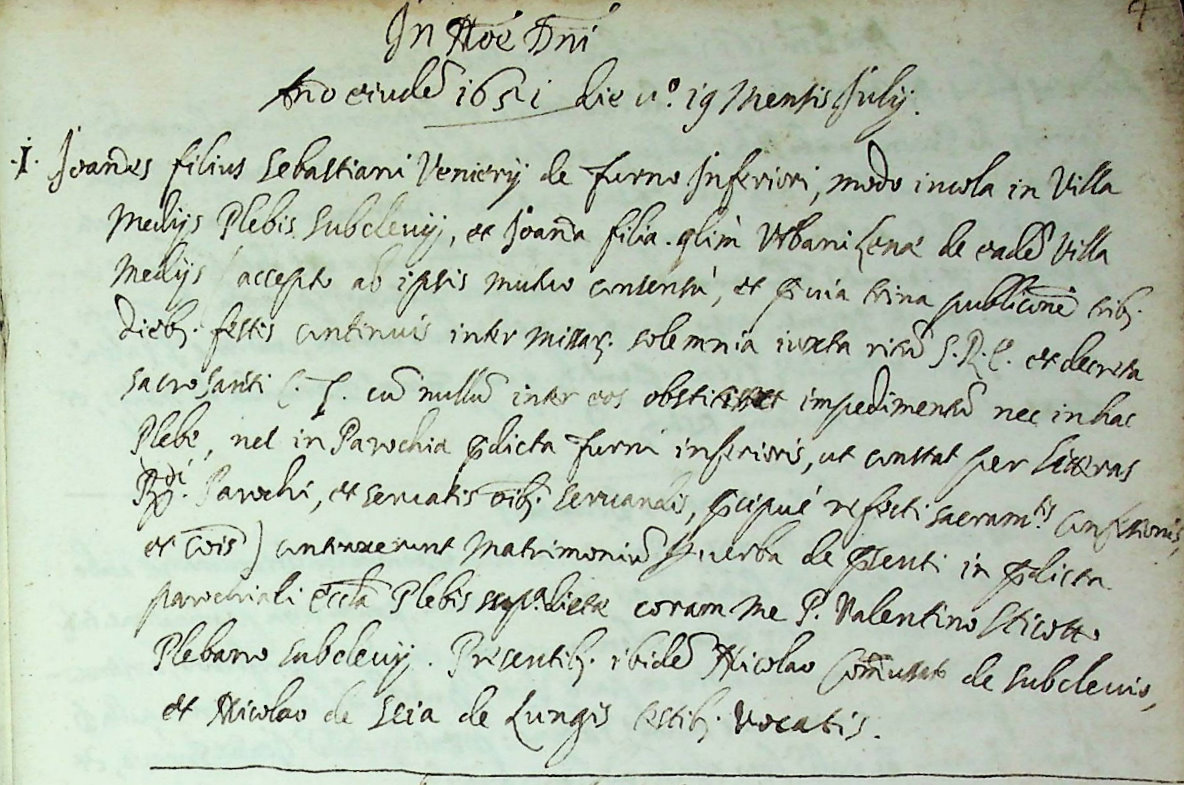 In Noĩe Dñi
Año eiusdẽ 1651 die v.º 19 Mensis Julij.
·I· Joañes filius Sebastiani Venierij de Furno Inferiori, modo incola in Villa
Medijs Plebis Subclevij, et Joaña filia qlim Urbani Lenæ de eadẽ Villa
Medijs (accepto ab ipsis mutuo consensu, et pũia trina publicoñe trib;
dieb; festis continuis inter missar; solemnia iuxta ritũ S.R.E. et decreta
sacrosancti C. T. cũ nullũ inter eos obstitisset impedimentũ nec in hac
Plebe, nel in Parochia pdicta Furni inferioris, ut constat per litteras
Rdi. Parochi, et servatis oĩb; servandis, pcipuè refecti sacramtis confessionis,
et cõis) contraxerunt Matrimoniũ p verba de pñti in pdicta
parochiali eccła Plebis supªdictæ coram me P. Valentino Sticotto
Plebano Subclevij. Presentib; ibidẽ Nicolao de Subclevio,
et Nicolao de Scia de Lungis testib; vocatis.